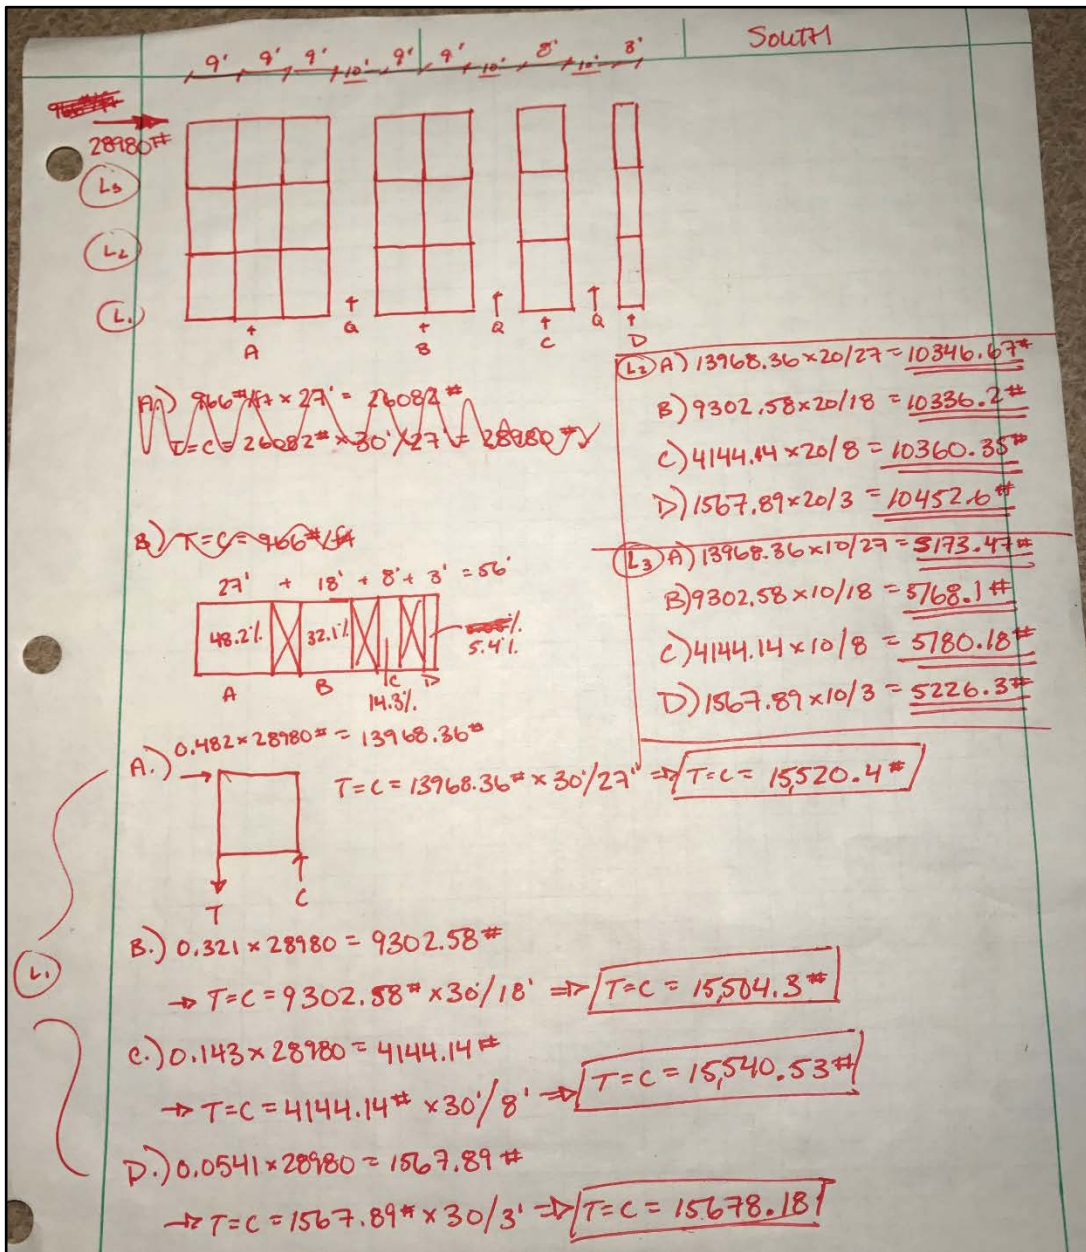 SOUTH
9' 9' 9' 10' 9' 9' 10' 8' 10' 3'
28980#
L3
L2
L1
Q Q Q
A B C D
A.) 966#/ft × 27' = 26082#
T=C= 26082# × 30'/27' = 28980#
B.) T=C= 966#/ft
27' + 18' + 8' + 3' = 56'
48.2% 32.1% 5.4%
A B C D
14.3%
L2 A) 13968.36 × 20/27 = 10346.67#
B) 9302.58 × 20/18 = 10336.2#
C) 4144.14 × 20/8 = 10360.35#
D) 1567.89 × 20/3 = 10452.6#
L3 A) 13968.36 × 10/27 = 5173.47#
B) 9302.58 × 10/18 = 5768.1#
C) 4144.14 × 10/8 = 5780.18#
D) 1567.89 × 10/3 = 5226.3#
A.) 0.482 × 28980# = 13968.36#
T=C= 13968.36# × 30'/27' ⇒ T=C= 15,520.4#
T C
L1
B.) 0.321 × 28980 = 9302.58#
→ T=C= 9302.58# × 30'/18' ⇒ T=C= 15,504.3#
C.) 0.143 × 28980 = 4144.14#
→ T=C= 4144.14# × 30'/8' ⇒ T=C= 15,540.53#
D.) 0.0541 × 28980 = 1567.89#
→ T=C= 1567.89# × 30/3' ⇒ T=C= 15678.18